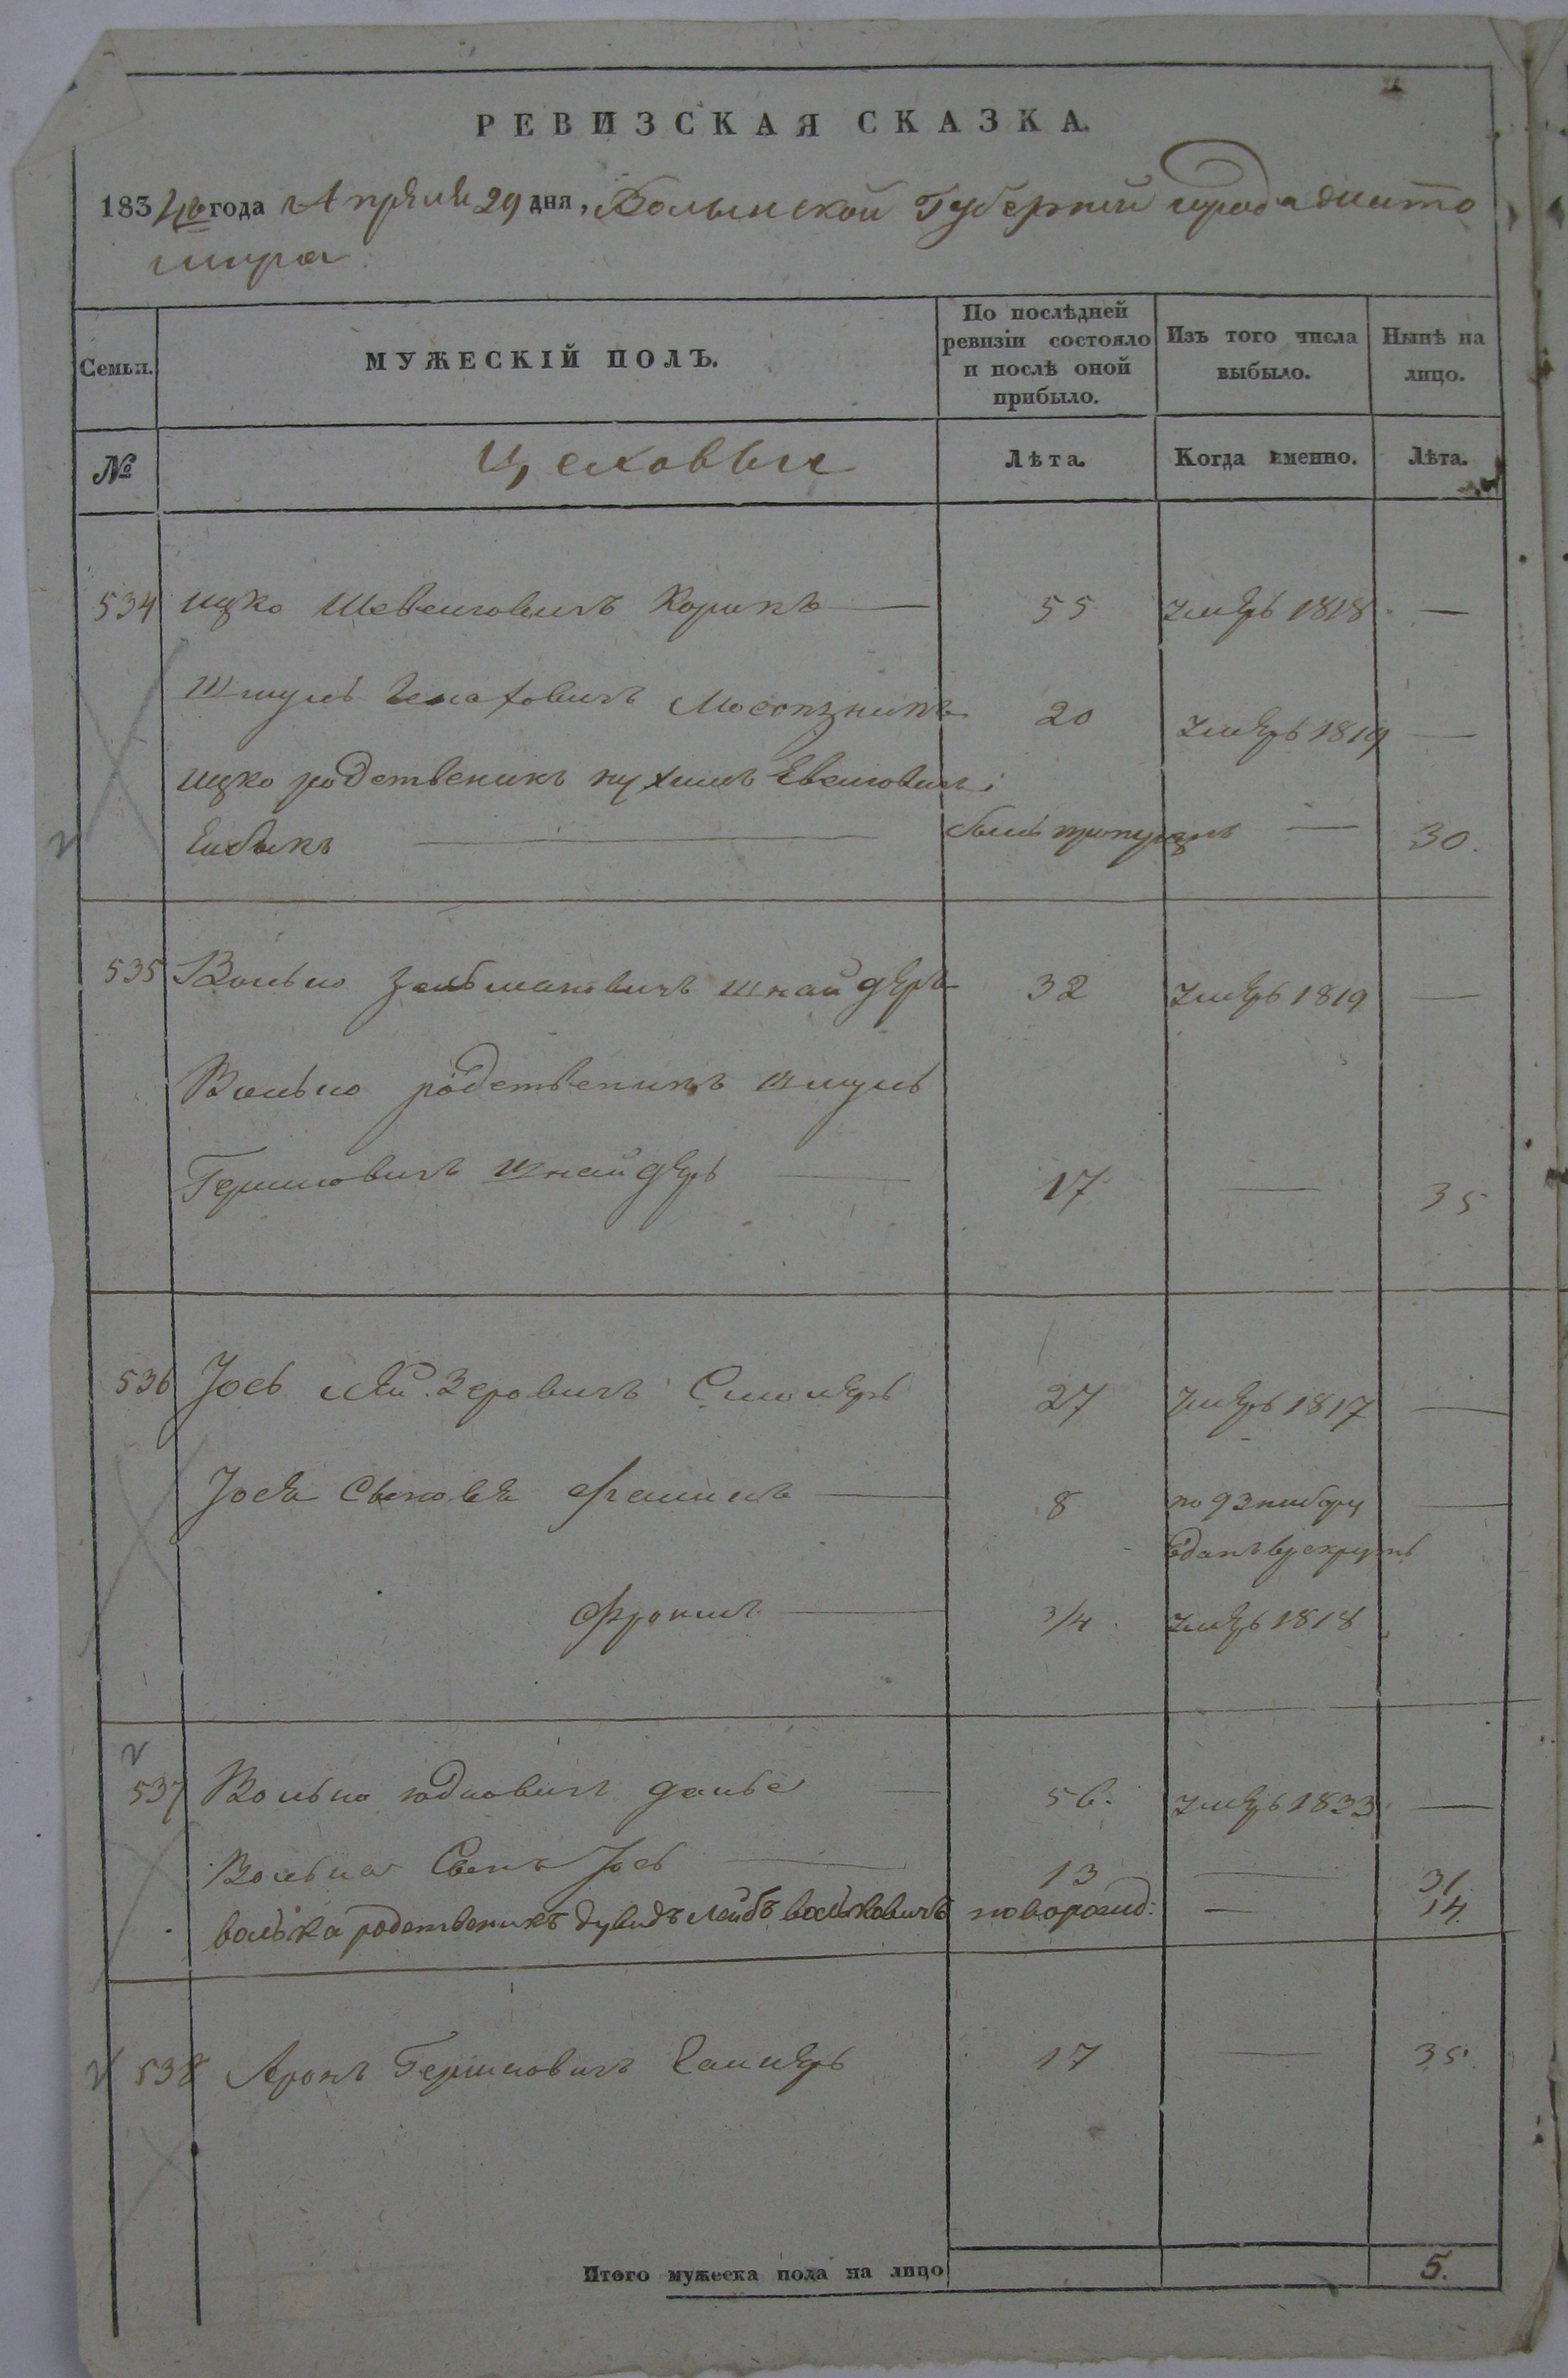 РЕВИЗСКАЯ СКАЗКА.
1834го года Апреля 29 дня, Волынской Губернии города Жито
мира
Семьи.
МУЖЕСКІЙ ПОЛЪ.
По послѣдней ревизіи состояло и послѣ оной прибыло.
Изъ того числа выбыло.
Нынѣ на лицо.
№
Цеховыи
Лѣта.
Когда именно.
Лѣта.
534 ицко Корикъ — 55 умеръ 1818 —
Шмуль 20 умеръ 1819 —
ицко родственикъ
былъ пропущенъ — 30.
535 Волько Зельмановичъ шнайдеръ 32 умеръ 1819 —
Волько родственикъ шмуль
Гершковичъ шнайдеръ — 17 — 35
536 Іось Лейзеровичъ 27 умеръ 1817 —
Іося Сыновя — 8 по набору —
зданъ врекруты
Фроимъ — 3/4 умеръ 1818
537 Волько юдковичъ — 56. умеръ 1833 —
Волька Сынъ Іось — 13 — 31
волька родственикъ дувидъ Лейбъ вольковичъ новорожд: — 14.
538 Аронъ Гершковичъ 17 — 35.
Итого мужеска пола на лицо 5.